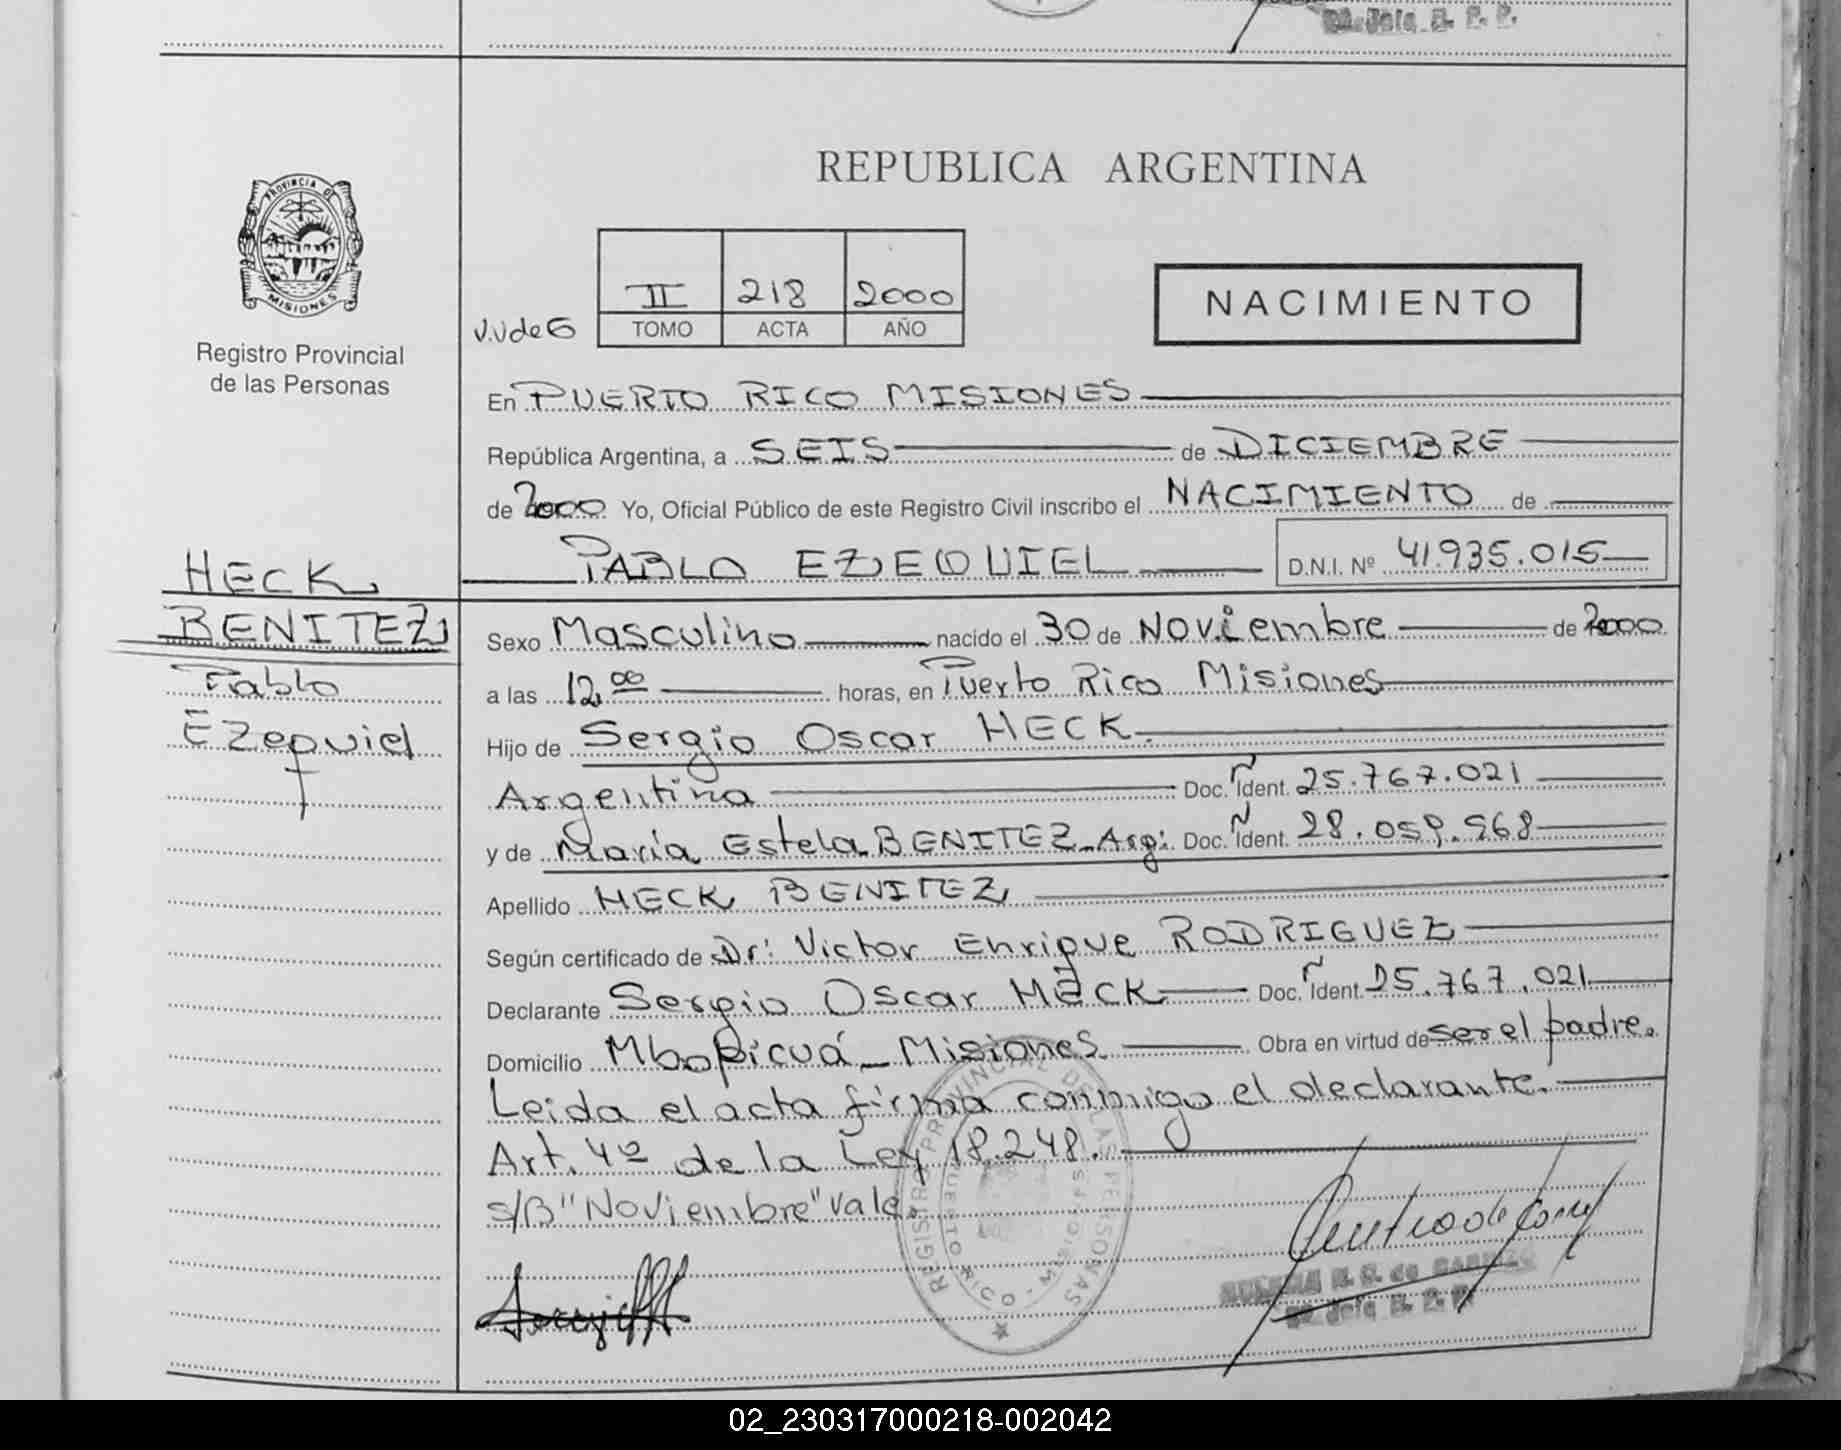 Jefa R. P. P.
REPUBLICA ARGENTINA
PROVINCIA DE
MISIONES
Registro Provincial
de las Personas
II 218 2000
V.Vde G TOMO ACTA AÑO
NACIMIENTO
En PUERTO RICO MISIONES
República Argentina, a SEIS de DICIEMBRE
de 2000 Yo, Oficial Público de este Registro Civil inscribo el NACIMIENTO de
PABLO EZEQUIEL D.N.I. Nº 41.935.015
HECK
BENITEZ
Pablo
Ezequiel
Sexo Masculino nacido el 30 de Noviembre de 2000
a las 12,00 horas, en Puerto Rico Misiones
Hijo de Sergio Oscar HECK.
Argentina Doc. Ident. 25.767.021
y de María Estela BENITEZ Arg: Doc. Ident. 28.059.968
Apellido HECK BENITEZ
Según certificado de Dr: Victor Enrique RODRIGUEZ
Declarante Sergio Oscar HECK Doc. Ident. 25.767.021
Domicilio Mbopicuá Misiones Obra en virtud de ser el padre.
Leida el acta firma conmigo el declarante.
Art. 4º de la Ley 18.248.
S/B "Noviembre" vale.
REGISTRO PROVINCIAL DE LAS PERSONAS
PUERTO RICO - MISIONES
de
Jefa R. P. P.
02_230317000218-002042